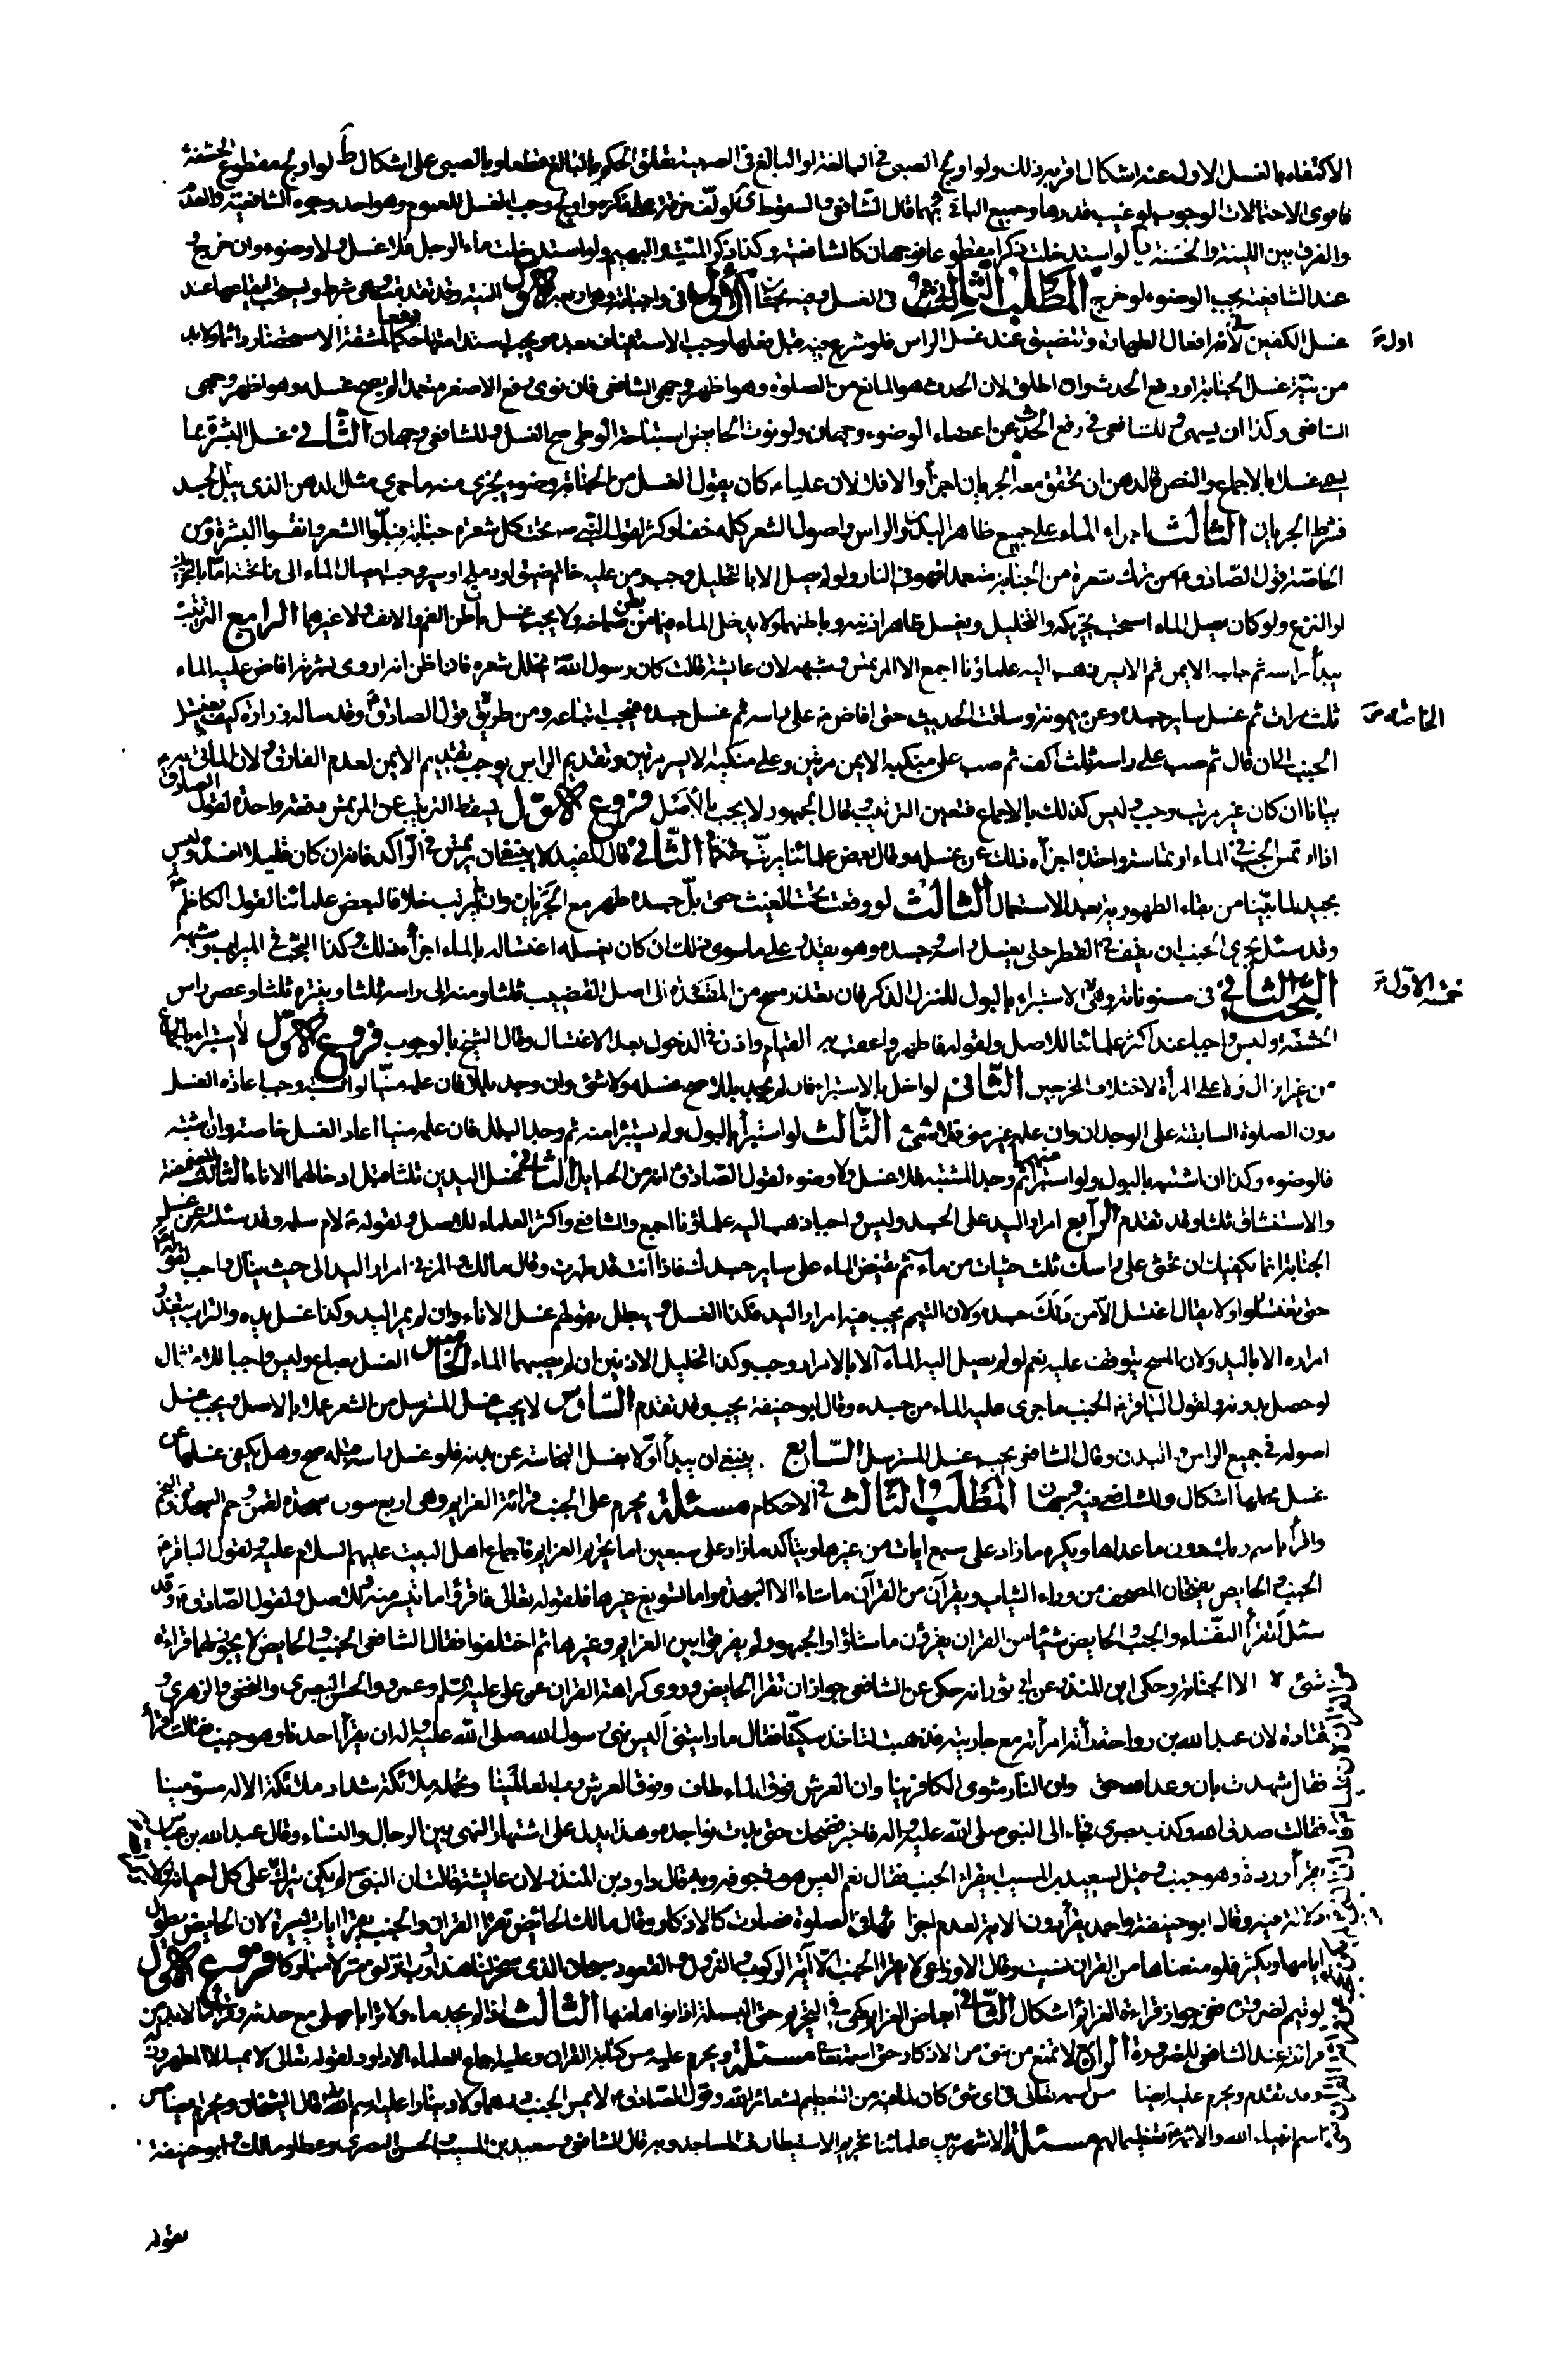 الاكتفاء بالغسل الاول عند اشكال اقربه ذلك ولو اولج الصبى فى البالغة او البالغ فى الصبية تعلق الحكم بالبالغ قطعا وبالصبى على اشكال ط لو اولج مقطوع الحشفة
فاقوى الاحتمالات الوجوب لو غيب قدرها وجميع الباقى بهما قال الشافعى والسقوط ى لو لف خرقة على ذكره واولج وجب الغسل للعموم وهو احد وجوه الشافعية والعدم
والفرق بين اللينة والخشنة يا لو استدخلت ذكرا مقطوعا فوجهان كالشافعية وكذا ذكر الميت والبهيم ولو استدخلت ماء الرجل فلا غسل ولا وضوء وان خرج و
عند الشافعية يجب الوضوء لو خرج المطلب الثانى فى الغسل وفيه بحثان الأول فى واجباته وهى اربعة الاول النية وقد تقدمت وهى شرط ويستحب ايقاعها عند
غسل الكفين لانه اول افعال الطهارة وتتضيق عند غسل الراس فلو شرع فيه قبل فعلها وجب الاستيناف بعده ويجب استدامتها حكما دفعا لمشقة الاستحضار دائما ولا بد
من نية غسل الجنابة او رفع الحدث وان اطلق لان الحدث هو المانع من الصلوة وهو اظهر وجهى الشافعى فان نوى رفع الاصغر متعمدا لم يصح غسله وهو اظهر وجهى
الشافعى وكذا ان سهى وللشافعى فى رفع الحدث عن اعضاء الوضوء وجهان ولو نوت الحايض استباحة الوطى صح الغسل وللشافعى وجهان الثانى غسل البشرة بما
يسمى غسلا بالاجماع والنص فالدهن ان تحقق معه الجريان اجزأ والا فلا لان عليا ع كان يقول الغسل من الجنابة والوضوء يجزى منه ما اجزى مثل الدهن الذى يبل الجسد
فشرط الجريان الثالث اجراء الماء على جميع ظاهر البدن والراس واصول الشعر كله خف او كثر لقول النبى ص تحت كل شعرة جنابة فبلوا الشعر وانقوا البشرة ومن
الخاصة قول الصادق ع من ترك شعرة من الجنابة متعمدا فهو فى النار ولو لم يصل الا بالتخليل وجب ومن عليه خاتم ضيق او دملج او سير وجب ايصال الماء الى ما تحته اما بالتحريك
او النزع ولو كان يصل الماء استحب تحريكه والتخليل ويغسل ظاهر اذنيه وباطنهما ولا يدخل الماء فيما بطن من صماخه ولا يجب غسل باطن الفم والانف ولا غيرهما الرابع الترتيب
يبدأ براسه ثم جانبه الايمن ثم الايسر ذهب اليه علماؤنا اجمع الا المرتمس وشبهه لان عايشة قالت كان رسول الله ص يخلل شعره فاذا ظن انه اروى بشرته افاض عليه الماء
ثلث مرات ثم غسل ساير جسده وعن ميمونة وساقت الحديث حتى افاض ص على راسه ثم غسل جسده فيجب اتباعه ومن طريق الخاصة قول الصادق ع وقد ساله زرارة كيف يغتسل
الجنب الى ان قال ثم صب على راسه ثلث اكف ثم صب على منكبه الايمن مرتين وعلى منكبه الايسر مرتين وتقديم الراس يوجب تقديم الايمن لعدم الفارق ولان الماتى به
بيانا ان كان غير مرتب وجب وليس كذلك بالاجماع فتعين الترتيب وقال الجمهور لا يجب بالاصل فروع الاول يسقط الترتيب عن المرتمس دفعة واحدة لقول الصادق
اذا ارتمس الجنب فى الماء ارتماسة واحدة اجزأه ذلك عن غسله وقال بعض علمائنا يرتب حكما الثانى قال المفيد لا ينبغى ان يرتمس فى الراكد فانه ان كان قليلا افسده وليس
بجيد لما بينا من بقاء الطهورية بعد الاستعمال الثالث لو وقف تحت الغيث حتى بل جسده طهر مع الجريان وان لم يرتب خلافا لبعض علمائنا لقول الكاظم ع
وقد سئل يجزى الجنب ان يقف فى القطر حتى يغسل راسه وجسده وهو يقدر على ما سوى ذلك ان كان يغسله اغتساله بالماء اجزأه ذلك وكذا البحث فى الميزاب وشبهه
البحث الثانى فى مسنوناته وهى خمسة الاول الاستبراء بالبول للمنزل الذكر فان تعذر مسح من المقعدة الى اصل القضيب ثلثا ومنه الى راسه ثلثا وينتره ثلثا وعصر راس
الحشفة وليس واجبا عند اكثر علمائنا للاصل ولقوله فاطهروا عقب بـه القيام واذن فى الدخول بعد الاغتسال وقال الشيخ بالوجوب فروع الاول لا استبراء بالجماع
من غير انزال ولا على المرأة لاختلاف المخرجين الثانى لو اخل بالاستبراء فان لم يجد بللا صح غسله ولا شئ وان وجد بللا فان علمه منيا او اشتبه وجب اعادة الغسل
دون الصلوة السابقة على الوجدان وان علم غير منى فلا شئ الثالث لو استبرأ بالبول ولم يستبرأ منه ثم وجد البلل فان علمه منيا اعاد الغسل خاصة وان اشتبه
فالوضوء وكذا ان اشتبه بالبول ولو استبرأ منهما ثم وجد المشتبه فلا غسل ولا وضوء لقول الصادق ع انه من الحبايل الثانى غسل اليدين ثلثا قبل ادخالهما الاناء الثالث المضمضة
والاستنشاق ثلثا وقد تقدم الرابع امرار اليد على الجسد وليس واجبا ذهب اليه علماؤنا اجمع والشافعى واكثر العلماء للاصل ولقوله ع لام سلمه وقد سئلته عن غسل
الجنابة انما يكفيك ان تحثى على راسك ثلث حثيات من ماء ثم تفيضى الماء على ساير جسدك فاذا انت قد طهرت وقال مالك والمزنى امرار اليد الى حيث ينال واجب لقوله تعالى
حتى تغتسلوا ولا يقال اغتسل الا لمن دلك جسده ولان التيمم يجب فيه امرار اليد فكذا الغسل ويبطل بقولهم غسل الاناء وان لم يمر اليد وكذا غسل يده والتراب يتعذر
امراره الا باليد ولان المسح يتوقف عليه نعم لو لم يصل اليه الماء الا بالامرار وجب وكذا تخليل الاذنين ان لم يصبهما الماء الخامس الغسل بصاع وليس واجبا للامتثال
لو حصل بدونه ولقول الباقر ع الجنب ما جرى عليه الماء من جسده وقال ابو حنيفة يجب وقد تقدم السادس لا يجب غسل المسترسل من الشعر عملا بالاصل ويجب غسل
اصوله فى جميع الراس والبدن وقال الشافعى يجب غسل المسترسل السابع ينبغى ان يبدأ اولا بغسل النجاسة عن بدنه فلو غسل راسه قبله صح وهل يكفى غسلها عن
غسل محلها اشكال وللشافعى فيه وجهان المطلب الثالث فى الاحكام مسئلة يحرم على الجنب قراءة العزايم وهى اربع سور سجدة لقمن وحم السجدة والنجم
واقرأ باسم ربك دون ما عداها ويكره ما زاد على سبع ايات من غيرها ويتأكد ما زاد على سبعين اما تحريم العزايم فاجماع اهل البيت عليهم السلام عليه ولقول الباقر ع
الجنب والحايض يفتحان المصحف من وراء الثياب ويقرآن من القرآن ما شاءا الا السجدة واما تسويغ غيرها فلقوله تعالى فاقرؤا ما تيسر منه وللاصل ولقول الصادق ع وقد
سئل أتقرأ النفساء والجنب والحايض شيئا من القران يقرؤن ما شاؤا والجمهور لم يفرقوا بين العزايم وغيرها ثم اختلفوا فقال الشافعى الجنب والحايض لا يجوز لهما قراءة
شئ الا الجنازة وحكى ابن المنذر عن ابى ثور انه حكى عن الشافعى جواز ان تقرا الحايض وروى كراهة القران عن على عليه السلم وعمر والحسن البصرى والنخعى والزهرى و
قتادة لان عبد الله بن رواحة رأته امرأته مع جاريته فذهبت لتاخذ سكينا فقال ما رايتنى اليس نهى رسول الله صلى الله عليه واله ان يقرأ احدنا وهو جنب فقالت اقرأ
فقال شهدت بان وعد الله حق وان النار مثوى الكافرينا وان العرش فوق الماء طاف وفوق العرش رب العالمينا وتحمله ملائكة شداد ملائكة الاله مسومينا
فقالت صدق الله وكذب بصرى فجاء الى النبى صلى الله عليه واله فاخبره فضحك حتى بدت نواجده وهذا يدل على اشتهار النهى بين الرجال والنساء وقال عبد الله بن عباس
يقرأ ورده وهو جنب وقيل لسعيد بن المسيب ايقرأ الجنب فقال نعم اليس هو فى جوفه وبه قال داود بن المنذر لان عايشة قالت ان النبى ص لم يكن يذكر الله على كل احيانه
ولا دلالة فيه وقال ابو حنيفة واحمد يقرأ دون الاية لعدم اجزائها فى الصلوة فصارت كالاذكار وقال مالك الحائض تقرا القران والجنب يقرا ايات يسيرة لان الحايض يطول
ايامها ويكثر فلو منعناها من القران نسيت وقال الاوزاعى لا يقرا الجنب الا آية الركوب والنزول والقعود سبحان الذى سخر لنا هذا وب انزلنى منزلا مباركا فروع الاول
لو تيمم لضرورة ففى جواز قراءة العزائم اشكال الثانى ابعاض العزايم كهى فى التحريم حتى البسملة اذا نواها منها الثالث لو لم يجد ماء ولا ترابا صلى مع حدثه وقرأ ما لا بد من
قرائته عند الشافعى للضرورة الرابع لا تمنع من شئ من الاذكار حتى اسمه تعالى مسئلة ويحرم عليه مس كتابة القران وعليه اجماع العلماء الا داود لقوله تعالى لا يمسه الا المطهرون
وقد تقدم ويحرم عليه ايضا مس اسمه تعالى فى اى شئ كان لما فيه من التعظيم لشعائر الله وقول الصادق ع لا يمس الجنب درهما ولا دينارا عليه اسم الله قال الشيخان ويحرم ايضا مس
اسم انبياء الله والائمة ع تعظيما لهم مسئلة الاشهر بين علمائنا تحريم الاستيطان فى المساجد وبه قال الشافعى وسعيد بن المسيب والحسن البصرى وعطا ومالك وابو حنيفة
لقوله